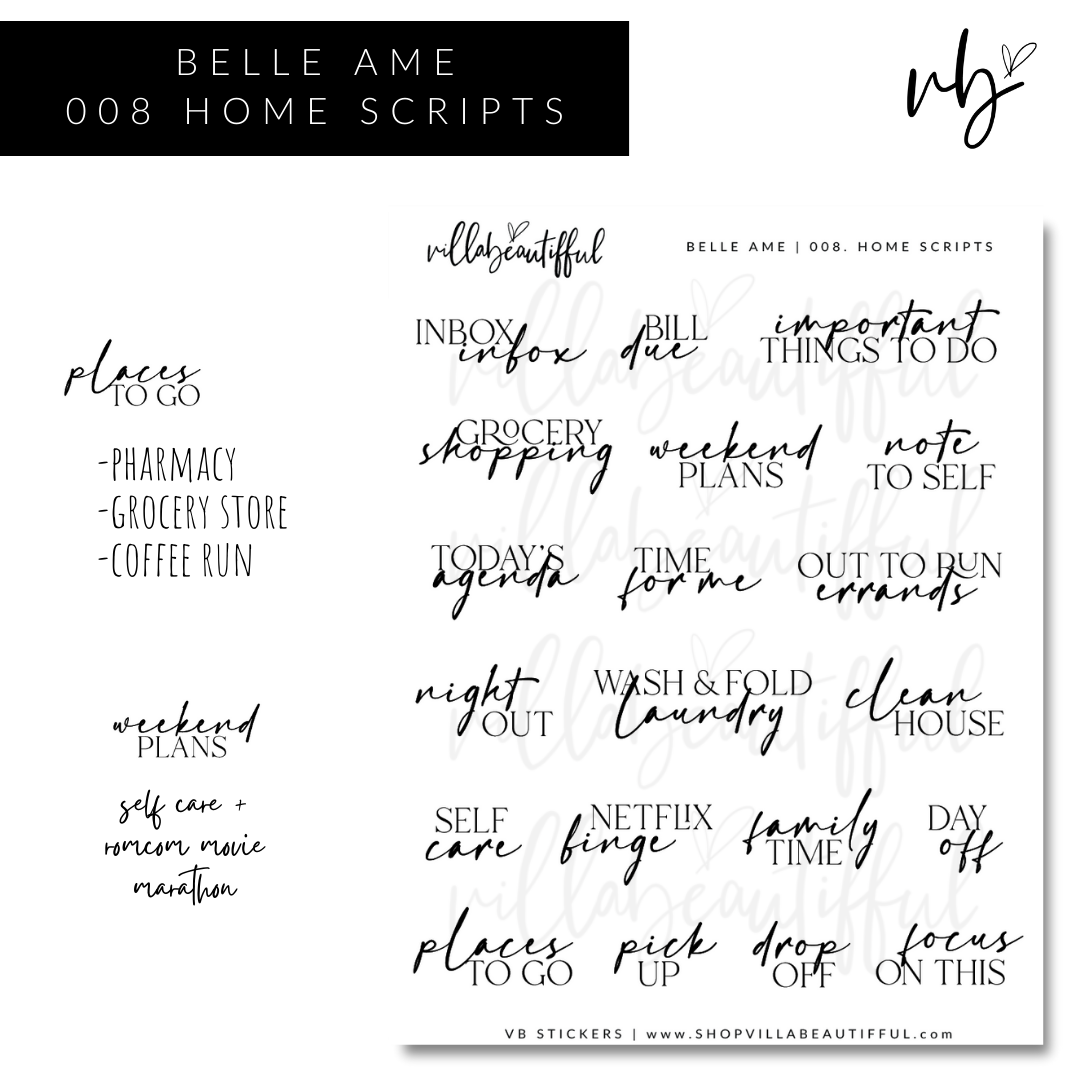 BELLE AME
008 HOME SCRIPTS
vb
villabeautifful
BELLE AME | 008. HOME SCRIPTS
places
TO GO
-PHARMACY
-GROCERY STORE
-COFFEE RUN
weekend
PLANS
self care +
romcom movie
marathon
INBOX
infox
BILL
due
important
THINGS TO DO
GROCERY
shopping
weekend
PLANS
note
TO SELF
TODAY'S
agenda
TIME
for me
OUT TO RUN
errands
night
OUT
WASH & FOLD
laundry
clean
HOUSE
SELF
care
NETFLIX
binge
family
TIME
DAY
off
places
TO GO
pick
UP
drop
OFF
focus
ON THIS
VB STICKERS | www.SHOPVILLABEAUTIFFUL.com